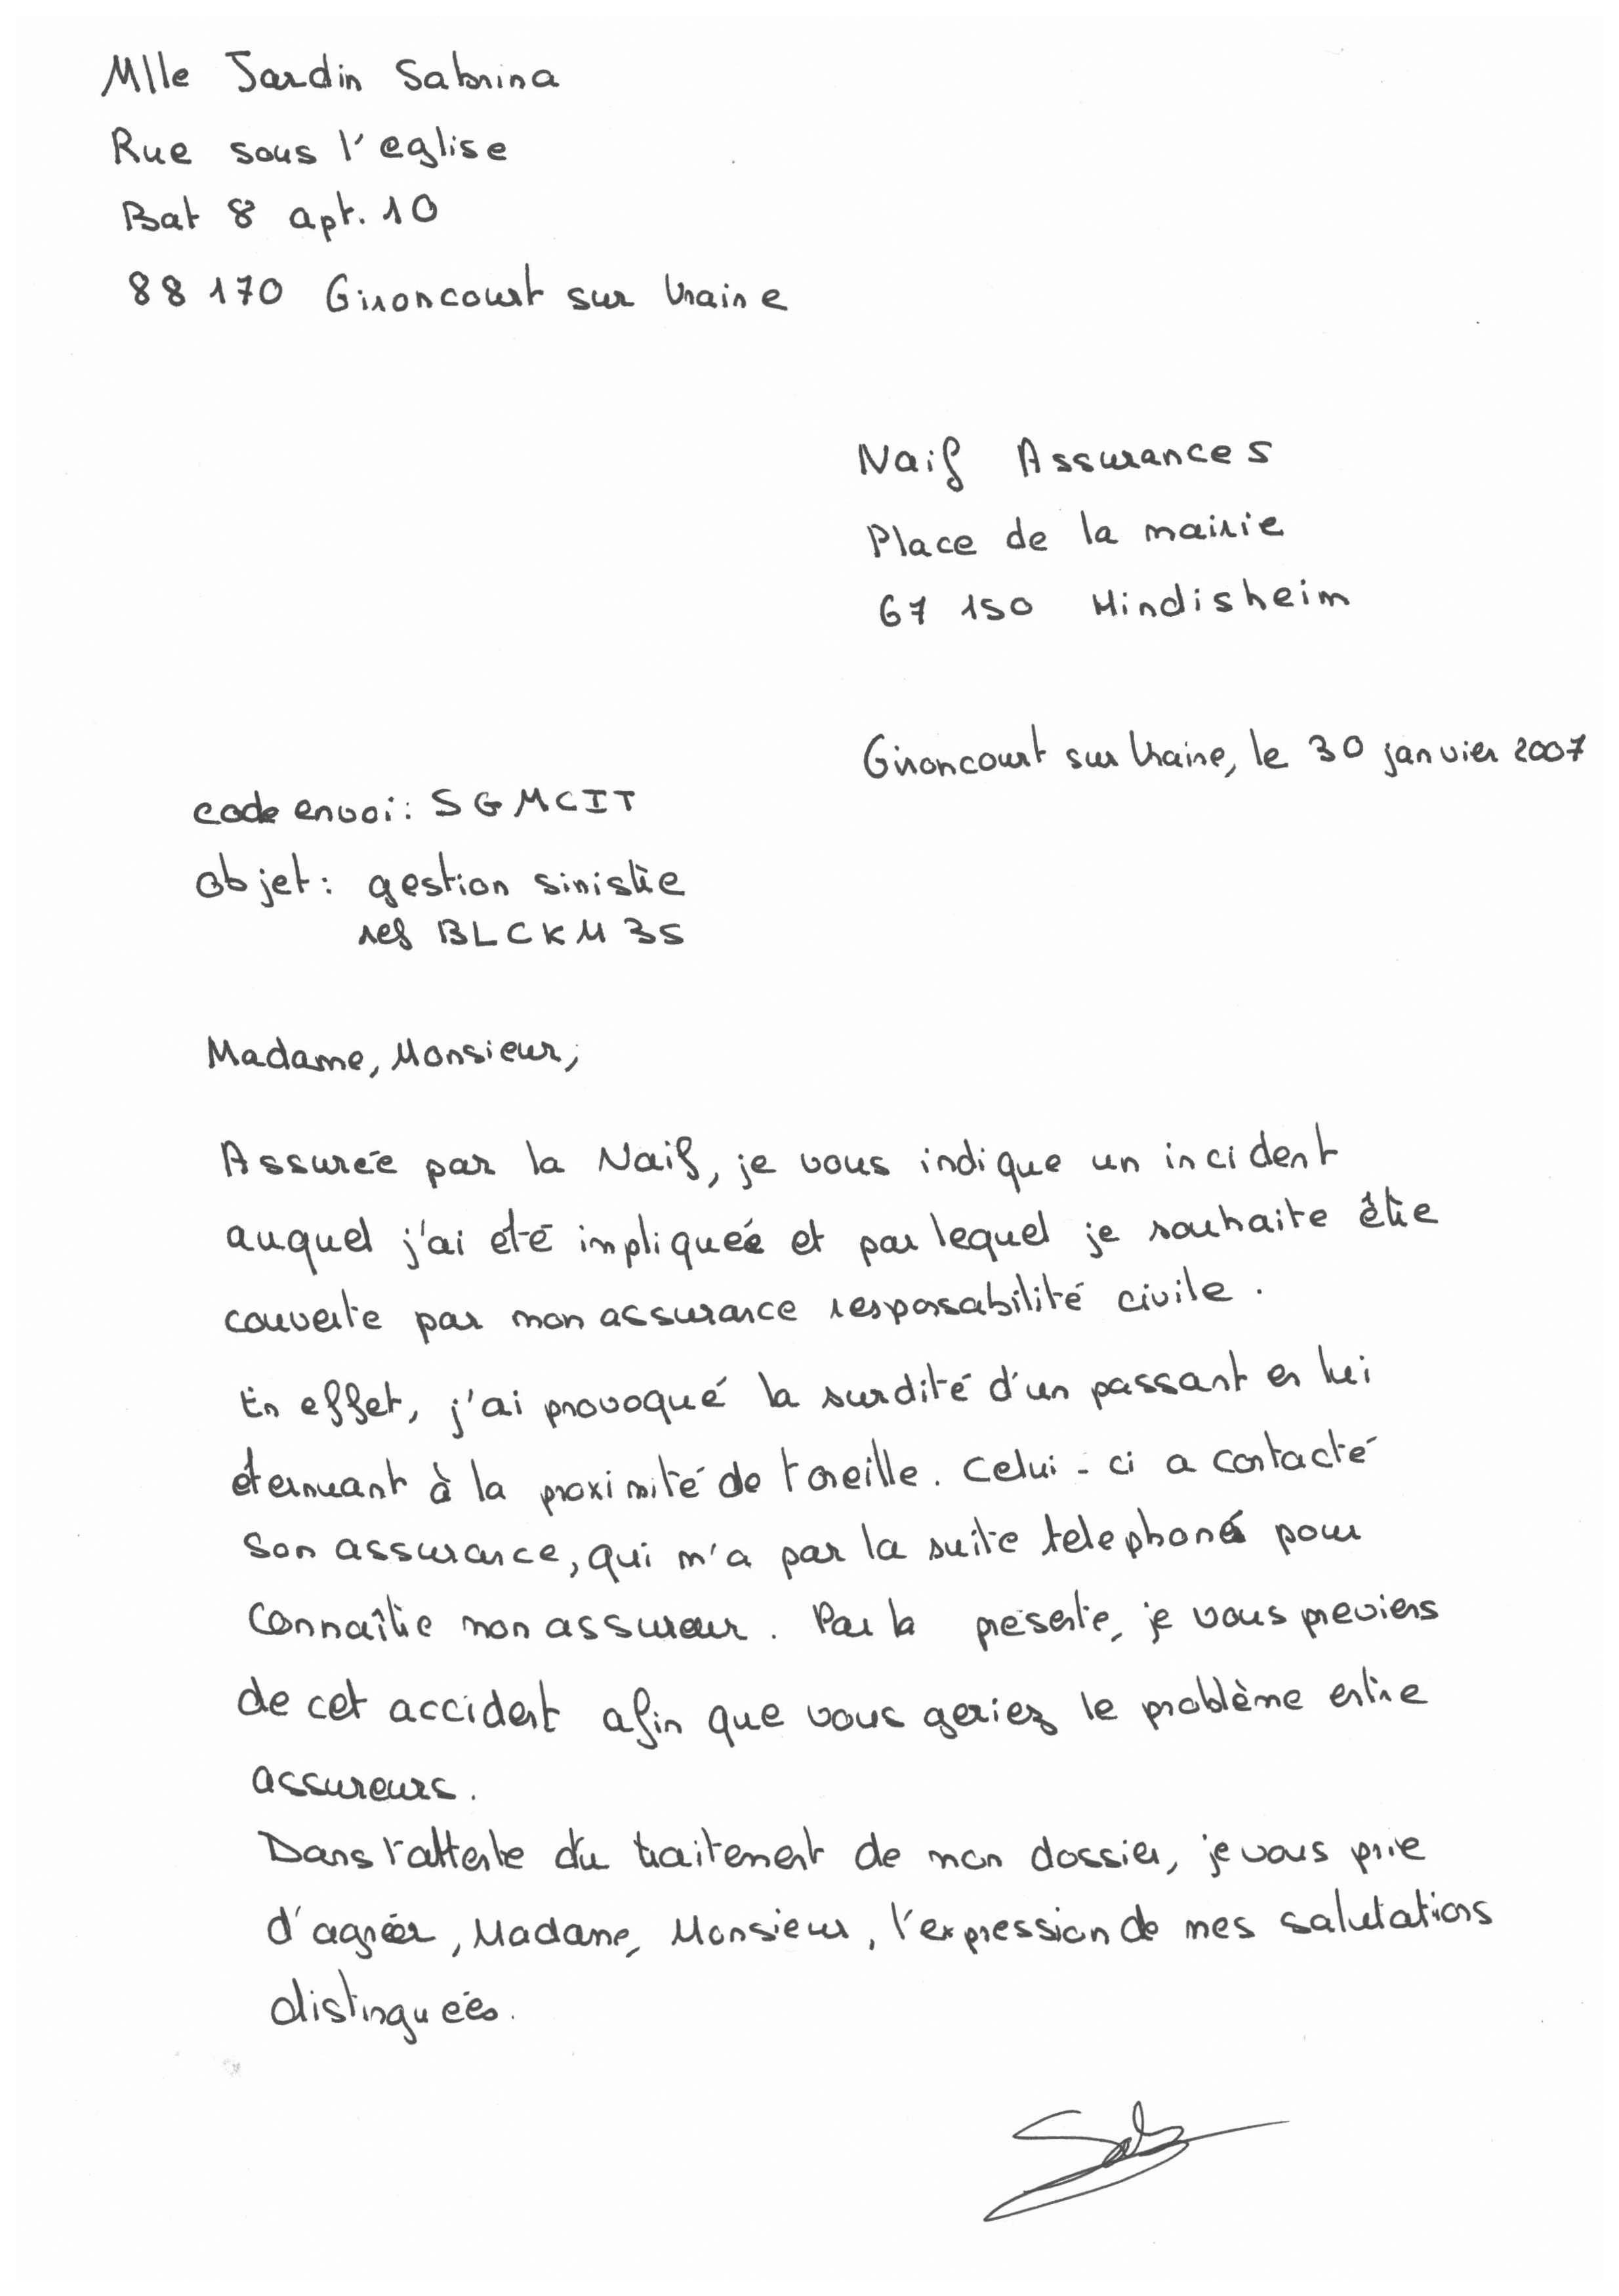 Mlle Jardin Sabrina
Rue sous l'eglise
Bat 8 apt. 10
88 170 Gironcourt sur Vraine
Naif Assurances
Place de la mairie
67 150 Hindisheim
Gironcourt sur Vraine, le 30 janvier 2007
code envoi : SGMCIT
objet : gestion sinistre
ref BLCKM35
Madame, Monsieur,
Assurée par la Naif, je vous indique un incident
auquel j'ai été impliquée et par lequel je souhaite être
couverte par mon assurance responsabilité civile.
En effet, j'ai provoqué la surdité d'un passant en lui
éternuant à la proximité de l'oreille. Celui-ci a contacté
son assurance, qui m'a par la suite telephoné pour
connaître mon assureur. Par la présente, je vous previens
de cet accident afin que vous geriez le problème entre
assureurs.
Dans l'attente du traitement de mon dossier, je vous prie
d'agréer, Madame, Monsieur, l'expression de mes salutations
distinguées.